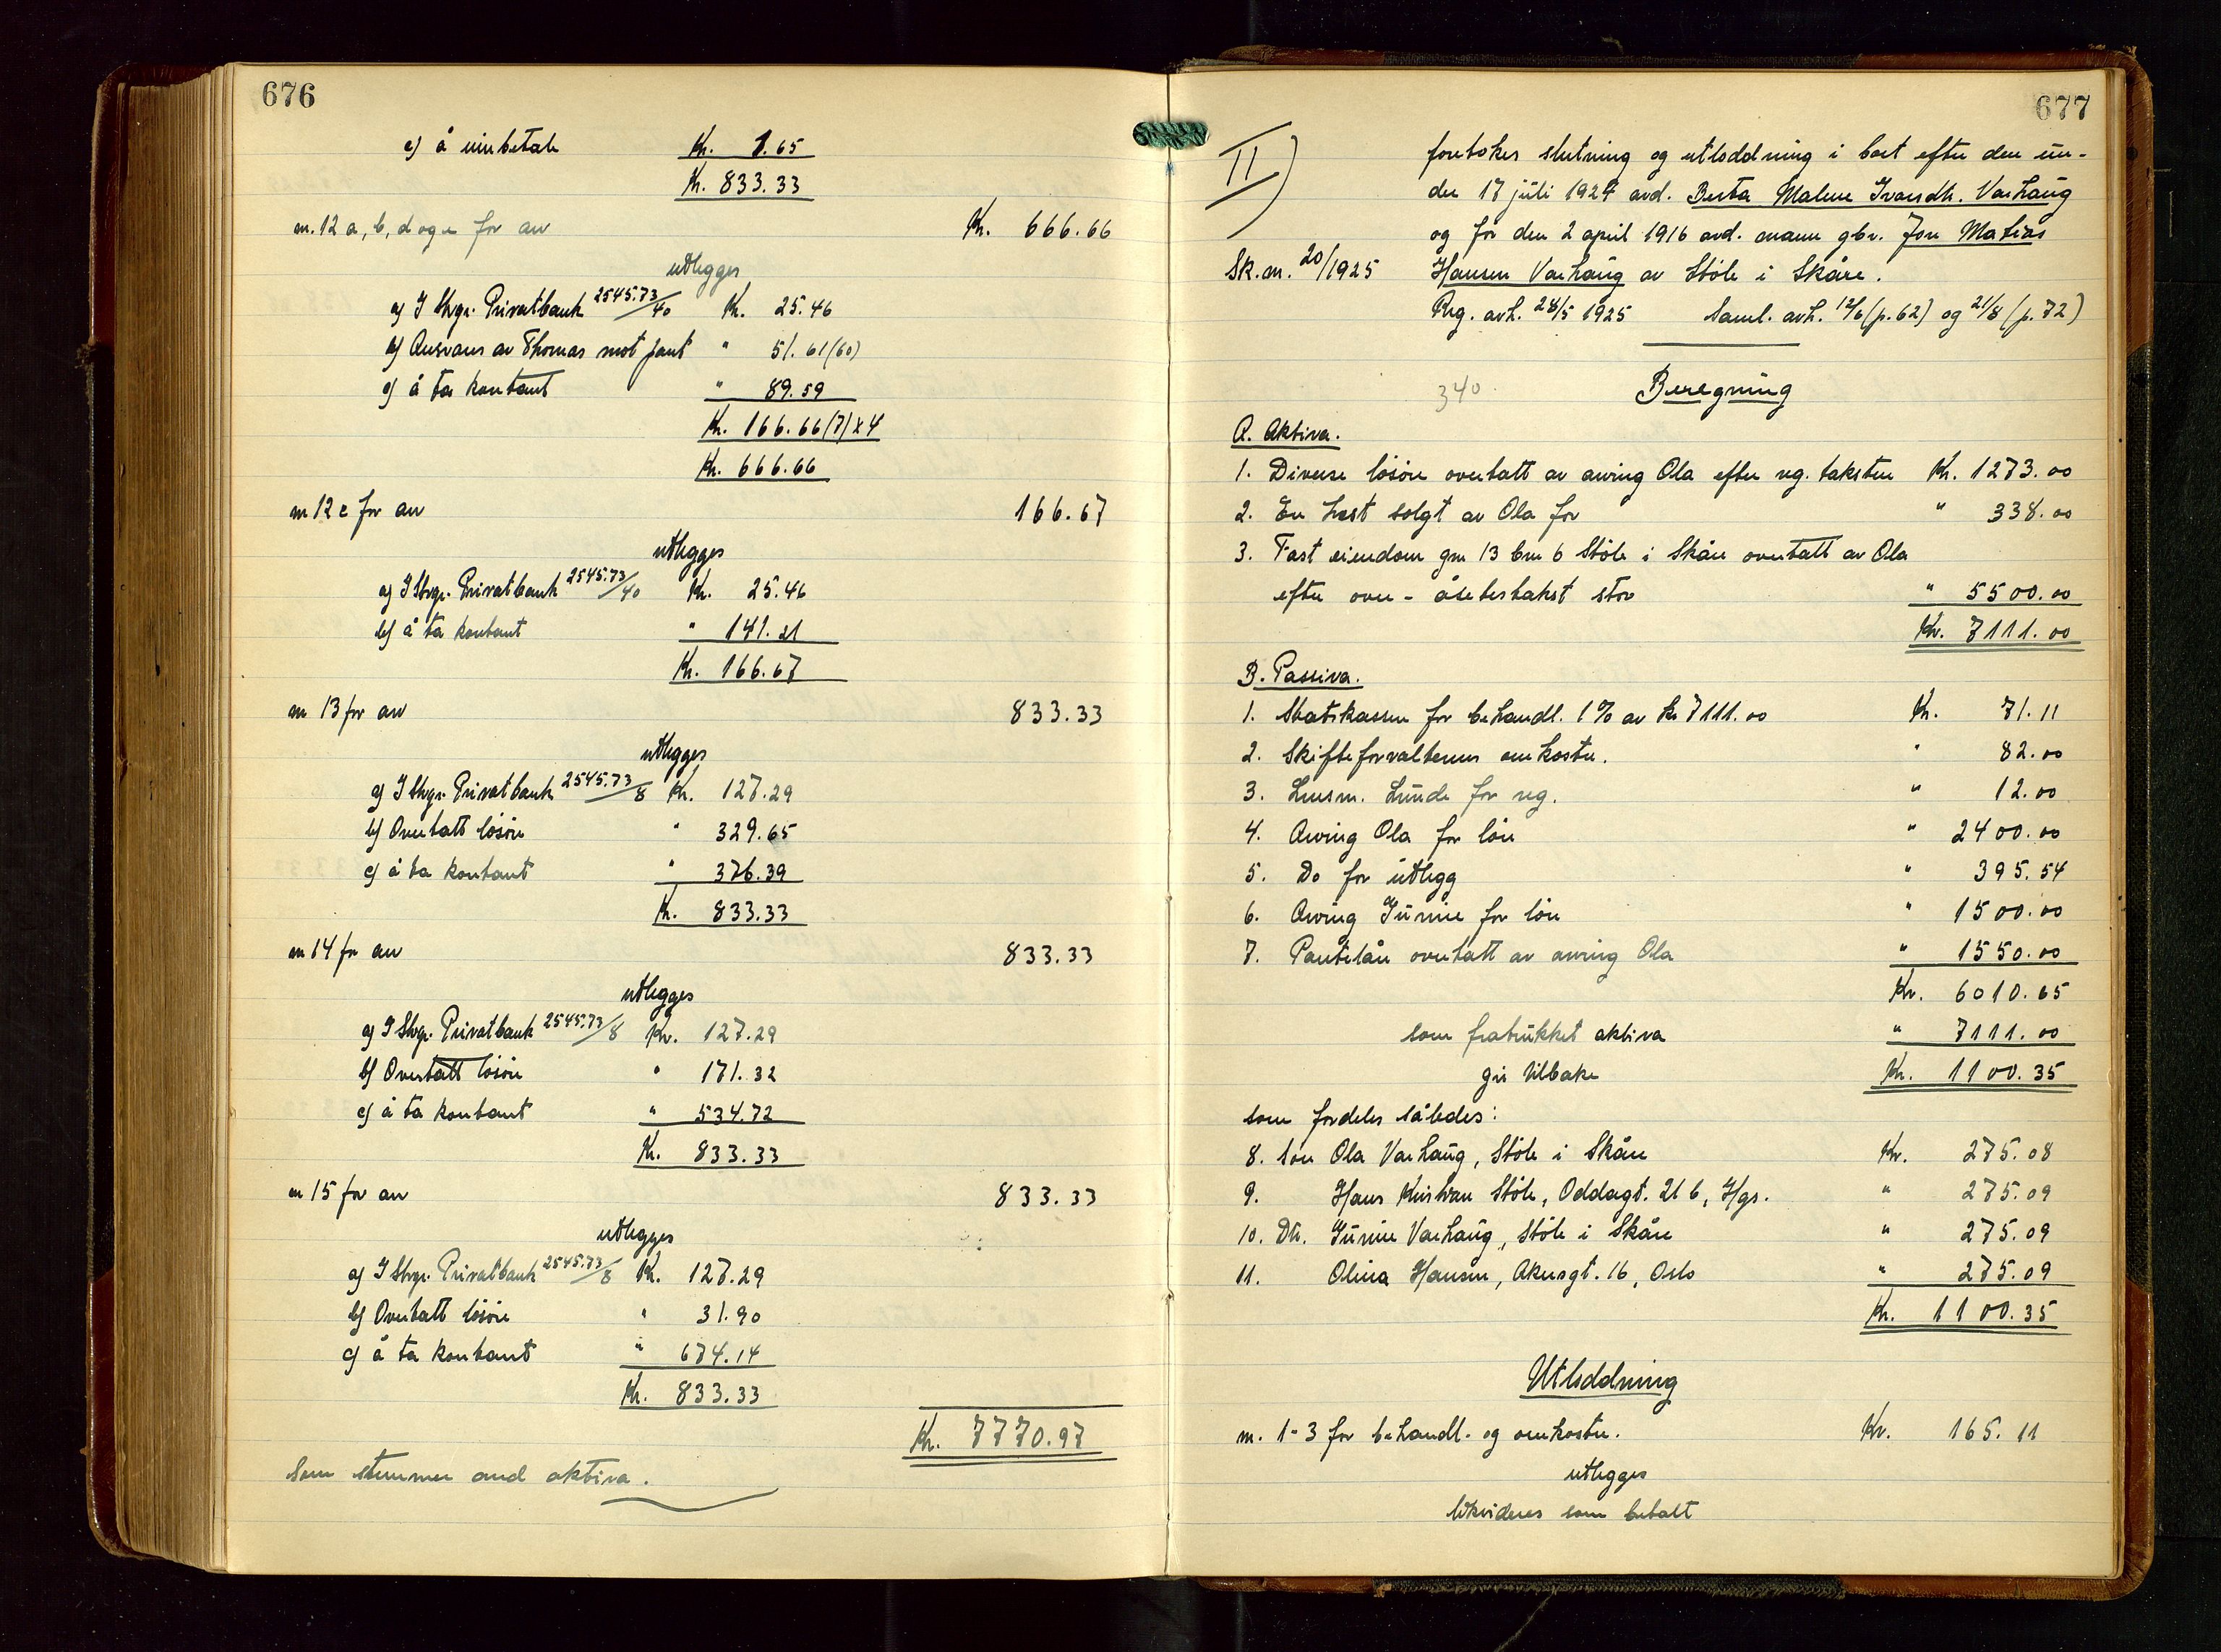 676
c) å innbetale Kr. 1.65
Kr. 833.33
nr. 12 a, b, d og e for arv Kr. 666.66
utlegges
a) I Hgr. Privatbank 2545.73/40 Kr. 25.46
b) Ansvars av Thomas mot pant " 51.61(60)
c) å ta kontant " 89.59
Kr. 166.66(7) x 4
Kr. 666.66
nr 12 c for arv 166.67
utlegges
a) I Hgr. Privatbank 2545.73/40 Kr. 25.46
b) å ta kontant " 141.21
Kr. 166.67
nr 13 for arv 833.33
utlegges
a) I Hgr. Privatbank 2545.73/8 Kr. 127.29
b) Overtatt lösöre " 329.65
c) å ta kontant " 376.39
Kr. 833.33
nr 14 for arv 833.33
utlegges
a) I Hgr. Privatbank 2545.73/8 Kr. 127.29
b) Overtatt lösöre " 171.32
c) å ta kontant " 534.72
Kr. 833.33
nr 15 for arv 833.33
utlegges
a) I Hgr. Privatbank 2545.73/8 Kr. 127.29
b) Overtatt lösöre " 31.90
c) å ta kontant " 674.14
Kr. 833.33
Kr. 7770.97
som stemmer med aktiva.
677
II) foretokes slutning og utloddning i boet efter den un-
der 17 juli 1924 avd. Berta Malene Ivarsdtr. Varhaug
og for den 2 april 1916 avd. mann gbr. Jon Matias
Sk.nr. 20/1925 Hansen Varhaug av Stöle i Skåre.
Reg. avh. 28/5 1925 Saml. avh. 12/6 (p. 62) og 21/8 (p. 72)
340. Beregning
A. Aktiva.
1. Diverse lösöre overtatt av arving Ola efter reg. taksten Kr. 1273.00
2. En hest solgt av Ola for " 338.00
3. Fast eiendom gnr 13 bnr 6 Stöle i Skåre overtatt av Ola
efter over - åsetestakst stor " 5500.00
Kr. 7111.00
B. Passiva.
1. Statskassen for behandl. 1% av kr 7111.00 Kr. 71.11
2. Skifteforvalterens omkostn. " 82.00
3. Lensm. Lunde for reg. " 12.00
4. Arving Ola for lön " 2400.00
5. Do for utlegg " 395.54
6. Arving Gunnie for lön " 1500.00
7. Pantelån overtatt av arving Ola " 1550.00
Kr. 6010.65
som fratrukket aktiva " 7111.00
gir tilbake Kr. 1100.35
som fordeles således:
8. Sön Ola Varhaug, Stöle i Skåre Kr. 275.08
9. Hans Kristian Stöle, Oddagt. 216, Hgs. " 275.09
10. Dtr. Gunnie Varhaug, Stöle i Skåre " 275.09
11. Olina Hansen, Akersgt. 16, Oslo " 275.09
Kr. 1100.35
Utloddning
nr. 1-3 for behandl. og omkostn. Kr. 165.11
utlegges
likvideres som betalt